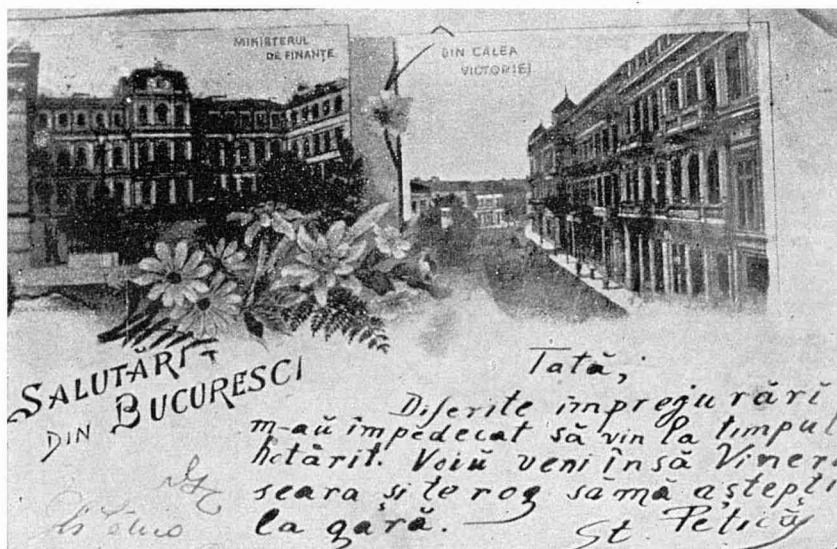 MINISTERUL
DE FINANȚE
DIN CALEA
VICTORIEI
SALUTĂRĬ
DIN BUCURESCI
Tată,
Diferite împregĭurări
m-aŭ împedecat să vin la timpul
hotărît. Voiŭ veni însă Vineri
seara și te rog să mă aștepți
la gară.—
Șt. Petică